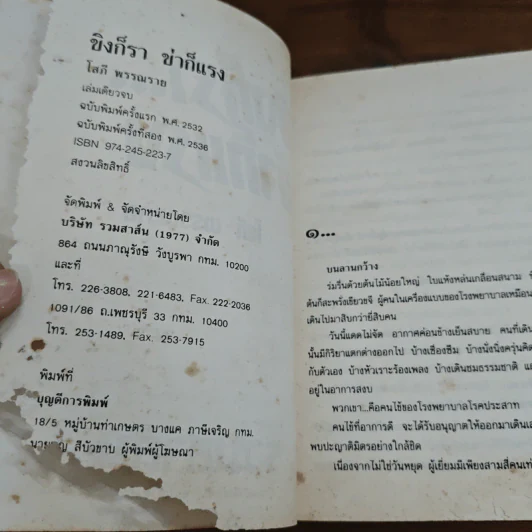 ขิงก็รา ข่าก็แรง
โสภี พรรณราย
เล่มเดียวจบ
ฉบับพิมพ์ครั้งแรก พ.ศ. 2532
ฉบับพิมพ์ครั้งที่สอง พ.ศ. 2536
ISBN 974-245-223-7
สงวนลิขสิทธิ์
จัดพิมพ์ & จัดจำหน่ายโดย
บริษัท รวมสาส์น (1977) จำกัด
864 ถนนภาณุรังษี วังบูรพา กทม. 10200
และที่
โทร. 226-3808, 221-6483, Fax. 222-2036
1091/86 ถ.เพชรบุรี 33 กทม. 10400
โทร. 253-1489, Fax. 253-7915
พิมพ์ที่
บุญดีการพิมพ์
18/5 หมู่บ้านท่าเกษตร บางแค ภาษีเจริญ กทม.
สีบัวขาบ ผู้พิมพ์ผู้โฆษณา
๑...
บนลานกว้าง
ร่มรื่นด้วยต้นไม้น้อยใหญ่ ใบแห้งหล่นเกลื่อนสนาม
ต้นก็สะพรั่งเขียวขจี ผู้คนในเครื่องแบบของโรงพยาบาลเหมือน
เดินไปมาสิบกว่ายี่สิบคน
วันนี้แดดไม่จัด อากาศค่อนข้างเย็นสบาย คนที่เดิน
นั้นมีกิริยาแตกต่างออกไป บ้างเซื่องซึม บ้างนั่งนิ่งครุ่นคิด
กับตัวเอง บ้างหัวเราะร้องเพลง บ้างเดินชมธรรมชาติ
อยู่ในอาการสงบ
พวกเขา...คือคนไข้ของโรงพยาบาลโรคประสาท
คนไข้ที่อาการดี จะได้รับอนุญาตให้ออกมาเดินเล่
พบปะญาติมิตรอย่างใกล้ชิด
เนื่องจากไม่ใช่วันหยุด ผู้เยี่ยมมีเพียงสามสี่คนเท่